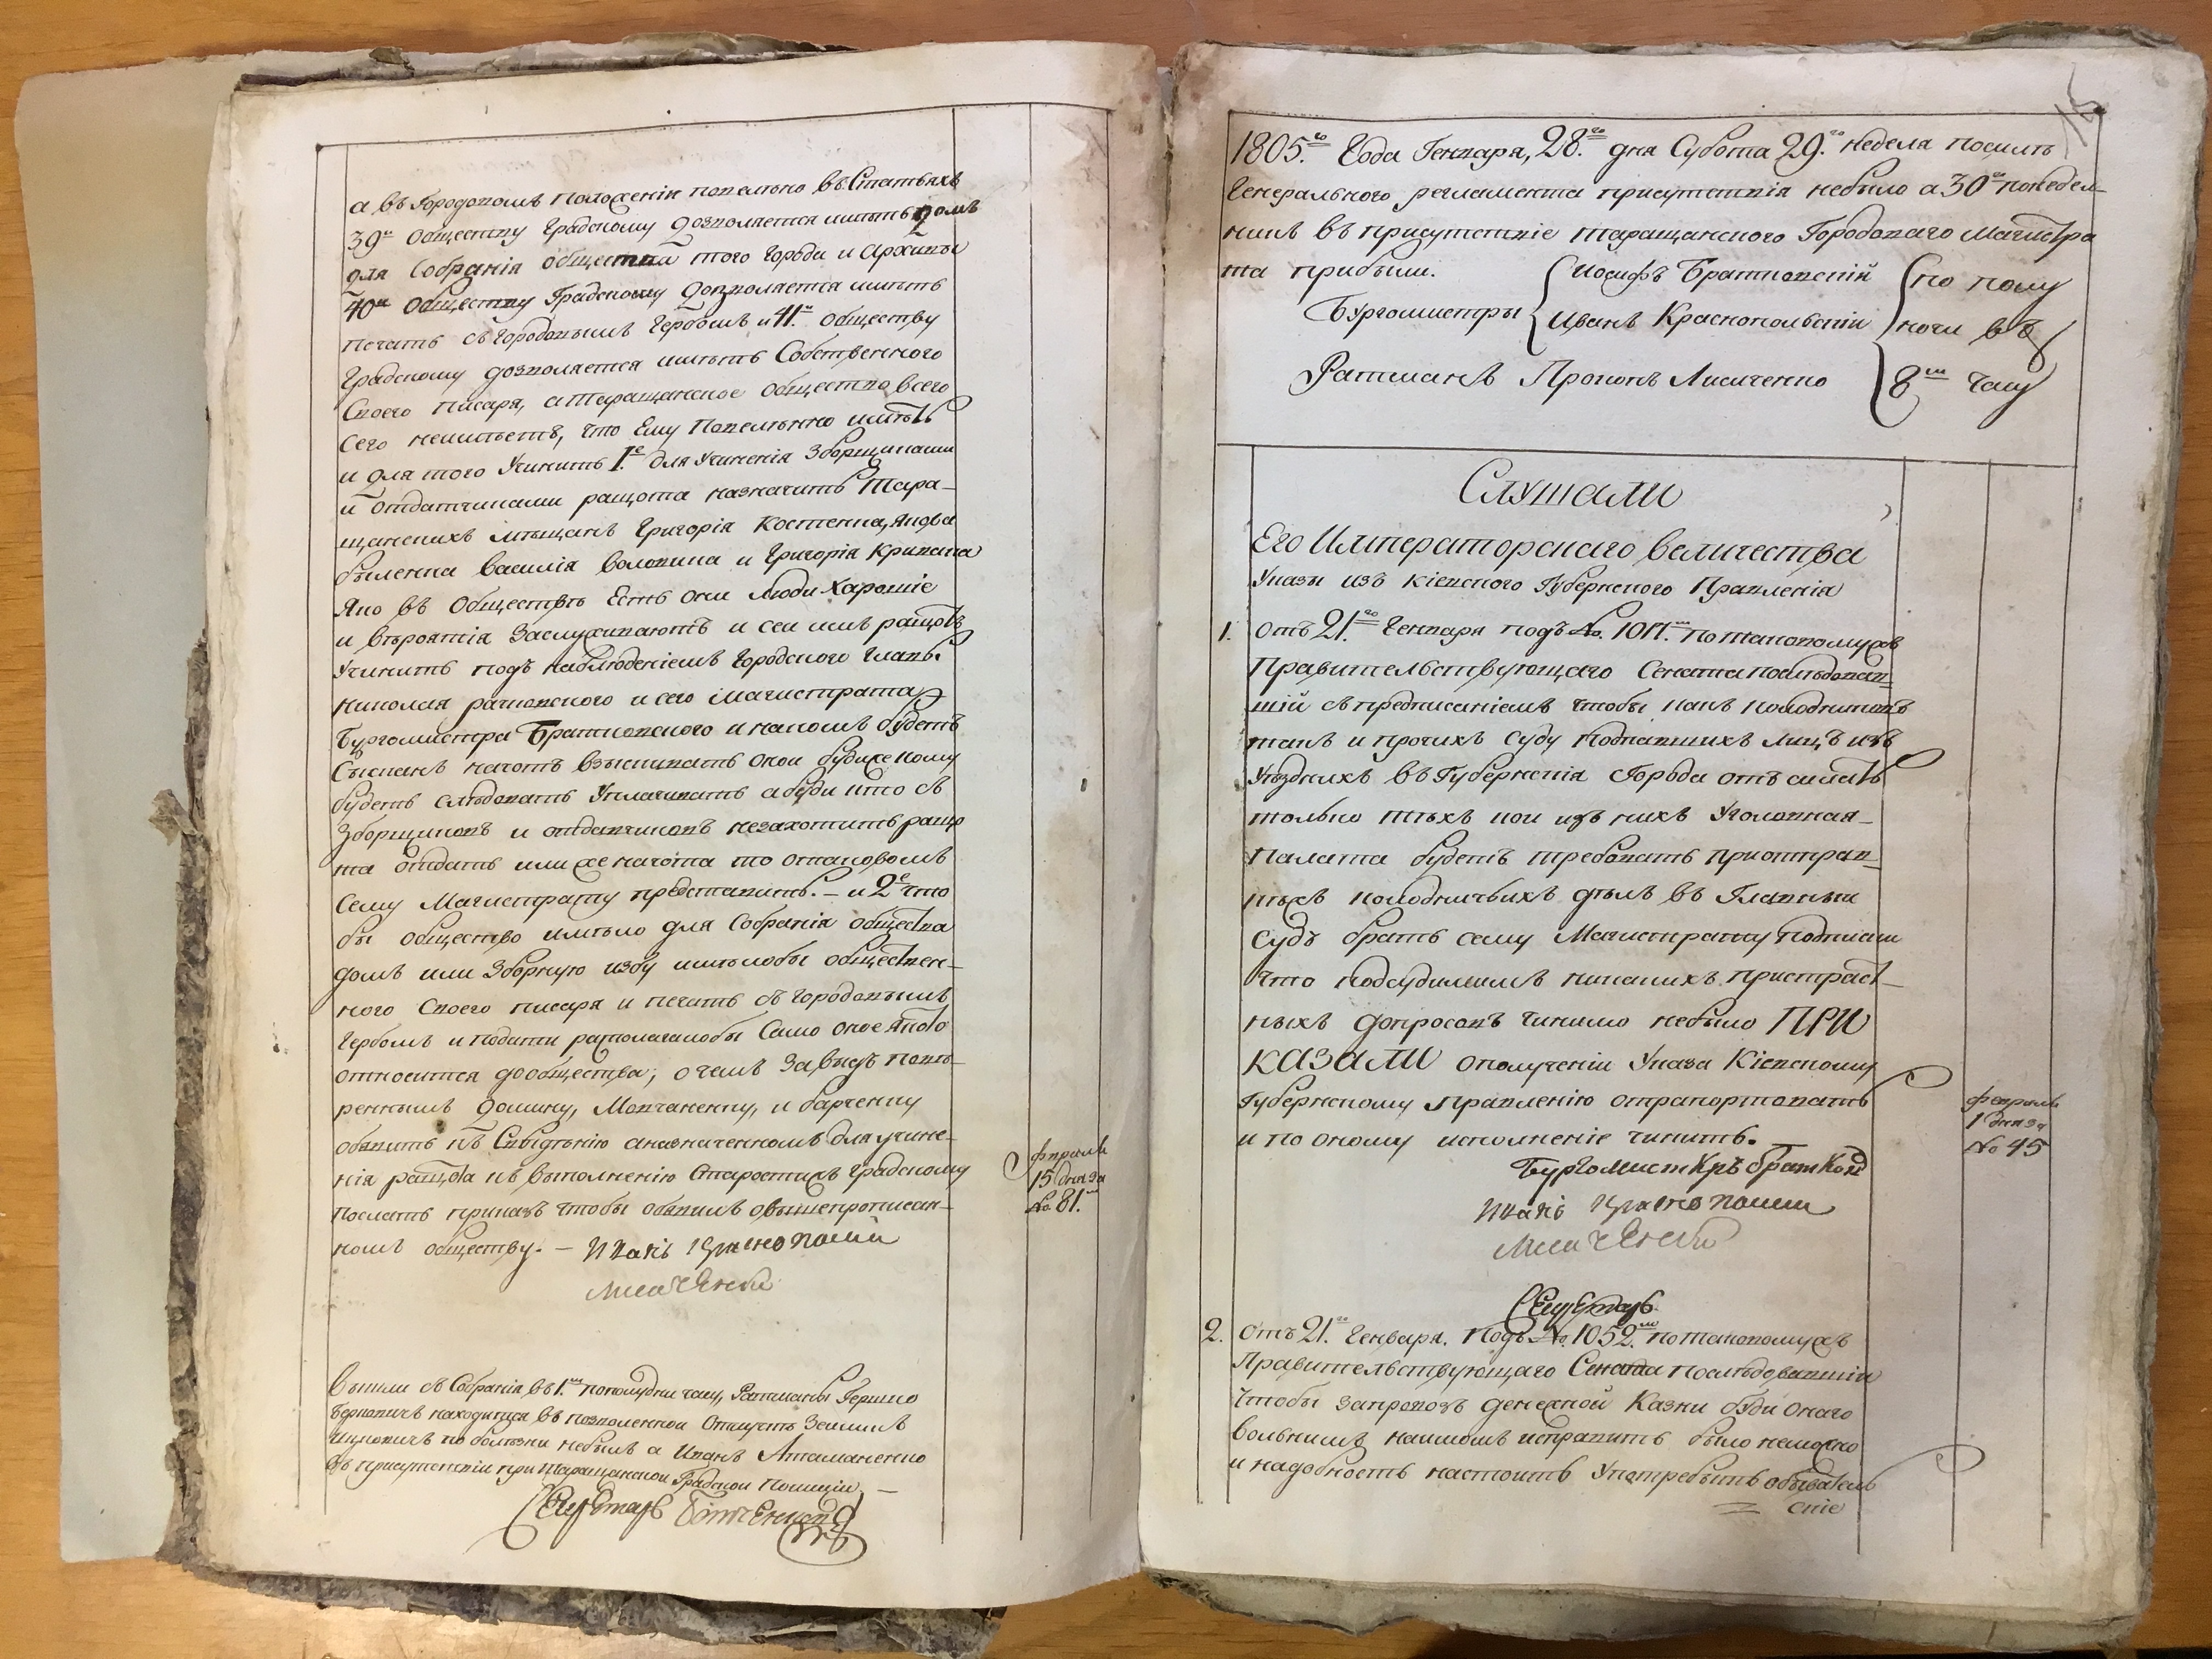 а въ Городовомъ Положеніи повелено въ Статьяхъ
39й Обществу Градскому дозволяется имѣть домъ
для Собранія общества того города и Архивы
40й Обществу Градскому дозволяется имѣть
печать съ городовымъ Гербомъ и 41й Обществу
Градскому дозволяется имѣть Собственного
Своего писаря, а таращанское общество всего
Сего неимѣетъ, что Ему повелѣнно имѣть
и для того Учинить 1е для Учиненія Зборщиками
и отдатчиками ращота назначить Тара-
щанскихъ мѣщанъ Григорія Костенка,
Василія Воловика и Григорія Кривака
Яко въ Обществѣ Есть они Люди Харошіе
и вѣроятія Заслуживаютъ и сей имъ ращотъ
Учинить подъ наблюденіемъ городского Главы
Николая рачковского и сего Магистрата
Бургомистра Братковского и на комъ будетъ
Сысканъ начотъ взыскивать онои буди же кому
будетъ слѣдовать Уплачивать а буди кто съ
Зборщиковъ и отдатчиковъ незахотить ращо
та отдать или же начота то о таковомъ
Сему Магистрату представить. - и 2е что
бы общество имѣло для Собранія общества
домъ или Зборную избу имѣлобы обществен-
ного Своего писаря и печать съ городовымъ
Гербомъ и подати располагалобы Само оное яко то
относится до общества, о чемъ За въ повѣ-
реннымъ Домину, Мовчаненку, и барченку
обявить къ Свѣдѣнію а назначеннымъ для учине-
нія ращота къ выполненію Старостижъ градскому
послать приказъ чтобы обявилъ о вышепрописан-
номъ обществу. - Иванъ Краснополски
Лисиченко
февраля
15 дня за
№ 81.
Вышли съ Собранія въ 1м пополудни часу, Ратманы Гершко
Берковичъ находится въ позволенной Отлучкѣ Зейликъ
Ицковичъ по болѣзни небылъ а Иванъ Атаманенко
въ присутствіи при Таращанской Градской Полиціи -
Секретарь
1805го Года Генваря, 28го дня Субота 29го недѣля посилѣ
Генерального регламента присутствія небыло а 30го понедел-
никъ въ присутствіе таращанского Городоваго Магистра
та прибыли.
Бургомистры Иосифъ Братковскій
Иванъ Краснополскій
по полу
ночи въ
Ратманъ Прокопъ Лисиченко 8мъ часу
Слушали
Его Императорскаго величества
Указы изъ Кіевского Губернского Правленія
1. отъ 21го Генваря подъ № 1017м по таковомужъ
Правительствующаго Сената послѣдовав-
шій съ предписаніемъ чтобы какъ колоднико въ
такъ и прочихъ Суду Подпавшихъ лицъ изъ
Уѣздныхъ въ Губернскія Города отъ силать
только тѣхъ кои изъ нихъ Уголовная
Палата будетъ требовать приотправ-
кѣхъ колодничьихъ дѣлъ въ Главный
Судъ брать сему Магистрату подписки
Что подсудимымъ никакихъ пристраст-
ныхъ допросовъ чинимо небыло ПРИ
КАЗАЛИ ополученіи Указа Кіевскому
Губернскому Правленію отрапортовать
и по оному исполненіе чинить.
февраля
1 дня за
№ 45
Бургомистръ Братков
Иванъ Краснополски
Лисиченко
Секретарь
2. отъ 21го Генваря. Подъ № 1052м по таковомужъ
Правительствующаго Сената послѣдовавшій
чтобы запровозъ денежной Казны буди онаго
вольнымъ наймомъ исправить было неможно
и надобность настоить Употребить обыватель
скіе